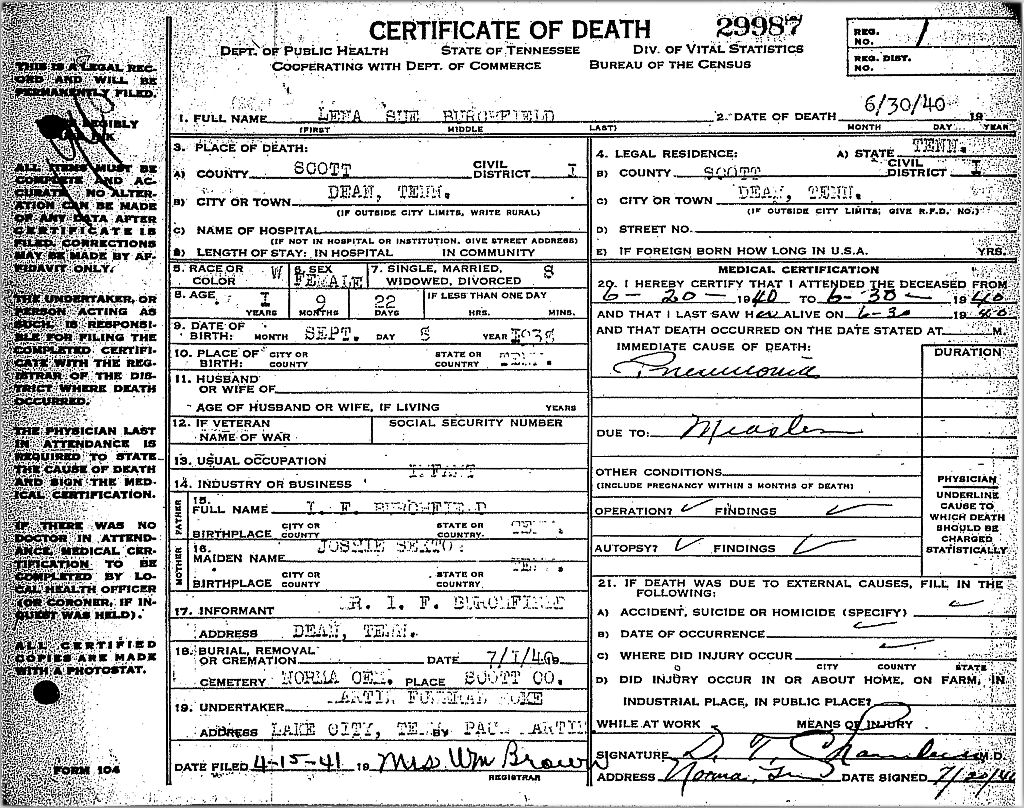 CERTIFICATE OF DEATH 29987
DEPT. OF PUBLIC HEALTH STATE OF TENNESSEE DIV. OF VITAL STATISTICS
COOPERATING WITH DEPT. OF COMMERCE BUREAU OF THE CENSUS
REG. NO. 1
REG. DIST. NO.
THIS IS A LEGAL REC-
ORD AND WILL BE
PERMANENTLY FILED.
LEGIBLY
ALL ITEMS MUST BE
COMPLETE AND AC-
CURATE. NO ALTER-
ATION CAN BE MADE
OF ANY DATA AFTER
CERTIFICATE IS
FILED. CORRECTIONS
MAY BE MADE BY AF-
FIDAVIT ONLY.
THE UNDERTAKER, OR
PERSON ACTING AS
SUCH, IS RESPONSI-
BLE FOR FILING THE
COMPLETED CERTIFI-
CATE WITH THE REG-
ISTRAR OF THE DIS-
TRICT WHERE DEATH
OCCURRED.
THE PHYSICIAN LAST
IN ATTENDANCE IS
REQUIRED TO STATE
THE CAUSE OF DEATH
AND SIGN THE MED-
ICAL CERTIFICATION.
IF THERE WAS NO
DOCTOR IN ATTEND-
ANCE, MEDICAL CER-
TIFICATION TO BE
COMPLETED BY LO-
CAL HEALTH OFFICER
(OR CORONER, IF IN-
QUEST WAS HELD).
ALL CERTIFIED
COPIES ARE MADE
WITH A PHOTOSTAT.
FORM 104
1. FULL NAME LENA SUE BURCHFIELD
(FIRST MIDDLE LAST)
2. DATE OF DEATH 6/30/40 19
MONTH DAY YEAR
3. PLACE OF DEATH:
A) COUNTY SCOTT CIVIL DISTRICT I
B) CITY OR TOWN DEAN, TENN.
(IF OUTSIDE CITY LIMITS, WRITE RURAL)
C) NAME OF HOSPITAL
(IF NOT IN HOSPITAL OR INSTITUTION, GIVE STREET ADDRESS)
D) LENGTH OF STAY: IN HOSPITAL IN COMMUNITY
5. RACE OR COLOR W 6. SEX FEMALE 7. SINGLE, MARRIED, WIDOWED, DIVORCED S
8. AGE I 9 22 IF LESS THAN ONE DAY
YEARS MONTHS DAYS HRS. MINS.
9. DATE OF BIRTH: MONTH SEPT. DAY 8 YEAR I938
10. PLACE OF BIRTH: CITY OR COUNTY STATE OR COUNTRY TENN.
11. HUSBAND OR WIFE OF
AGE OF HUSBAND OR WIFE, IF LIVING YEARS
12. IF VETERAN NAME OF WAR SOCIAL SECURITY NUMBER
13. USUAL OCCUPATION INFANT
14. INDUSTRY OR BUSINESS
FATHER
15. FULL NAME I. F. BURCHFIELD
BIRTHPLACE CITY OR COUNTY STATE OR COUNTRY TENN.
MOTHER
16. MAIDEN NAME JOSHIE SEXTON
BIRTHPLACE CITY OR COUNTY STATE OR COUNTRY TENN.
17. INFORMANT MR. I. F. BURCHFIELD
ADDRESS DEAN, TENN.
18. BURIAL, REMOVAL OR CREMATION DATE 7/I/40
CEMETERY NORMA CEM. PLACE SCOTT CO.
19. UNDERTAKER FUNERAL HOME
ADDRESS LAKE CITY, TENN BY PAUL
DATE FILED 4-15-41 19 Mrs Wm Brown
REGISTRAR
4. LEGAL RESIDENCE: A) STATE TENN.
B) COUNTY SCOTT CIVIL DISTRICT I
C) CITY OR TOWN DEAN, TENN.
(IF OUTSIDE CITY LIMITS, GIVE R.F.D. NO.)
D) STREET NO.
E) IF FOREIGN BORN HOW LONG IN U.S.A. YRS.
MEDICAL CERTIFICATION
20. I HEREBY CERTIFY THAT I ATTENDED THE DECEASED FROM
6-20- 1940 TO 6-30- 1940
AND THAT I LAST SAW Her ALIVE ON 6-30 1940
AND THAT DEATH OCCURRED ON THE DATE STATED AT M.
IMMEDIATE CAUSE OF DEATH: DURATION
Pneumonia
DUE TO: Measles
OTHER CONDITIONS
(INCLUDE PREGNANCY WITHIN 3 MONTHS OF DEATH)
OPERATION? ✓ FINDINGS ✓
AUTOPSY? ✓ FINDINGS ✓
PHYSICIAN
UNDERLINE
CAUSE TO
WHICH DEATH
SHOULD BE
CHARGED
STATISTICALLY
21. IF DEATH WAS DUE TO EXTERNAL CAUSES, FILL IN THE
FOLLOWING:
A) ACCIDENT, SUICIDE OR HOMICIDE (SPECIFY)
B) DATE OF OCCURRENCE
C) WHERE DID INJURY OCCUR
CITY COUNTY STATE
D) DID INJURY OCCUR IN OR ABOUT HOME, ON FARM, IN
INDUSTRIAL PLACE, IN PUBLIC PLACE?
WHILE AT WORK MEANS OF INJURY
SIGNATURE D. T. Chambers M.D.
ADDRESS Norma, Tenn DATE SIGNED